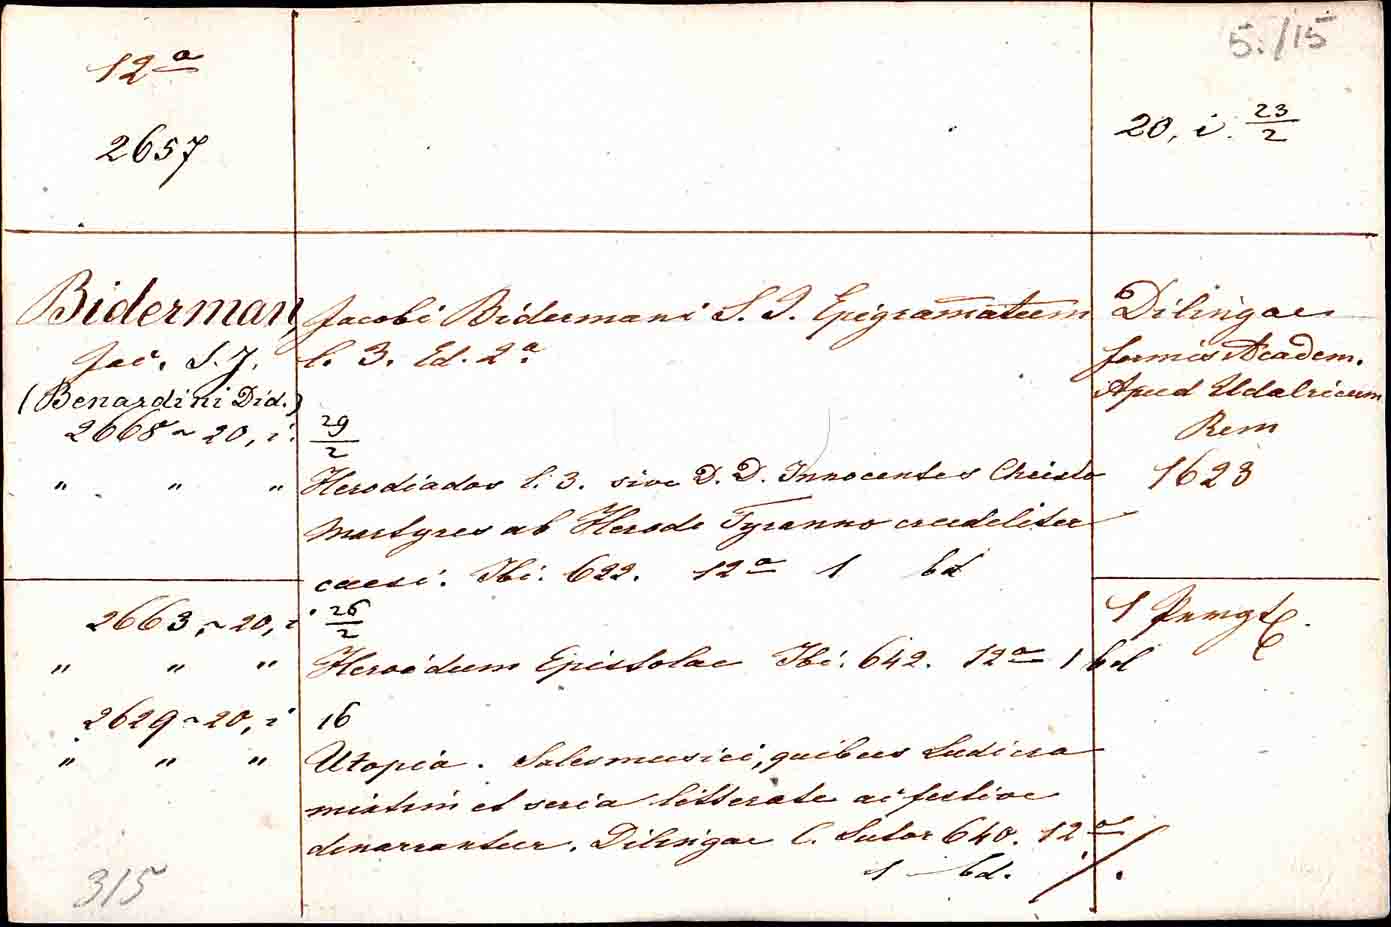 5./15
12a
2657
20, i. 23/2
Biderman
Jac. S. J.
(Benardini Did.)
Jacobi Bidermani S. J. Epigramatum
l. 3. Ed. 2a.
Dilingae
formis Academ.
Apud Udalricum
Rem
1623
2668 ~ 20, i. 29/2
" " " Herodiados l. 3. sive D. D. Innocentes Christo
Martyres ab Herode Tyranno crudeliter
caesi. Ibi. 622. 12a 1 bd
1 Pergt.
2663, ~ 20, i. 26/2
" " " Heroidum Epistolae Ibi. 642. 12a 1 bd
2629 ~ 20, i 16
" " " Utopia. Sales musici, quibus Ludicra
mixtim et seria litterate ac festive
denarrantur. Dilingae C. Sutor 640. 12a
1 bd. /.
315